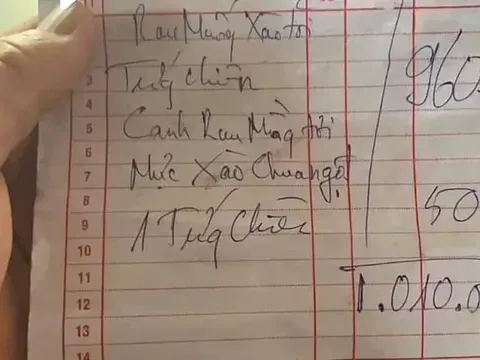 Rau Muống Xào tỏi
3 Trứng chiên 960
4
5 Canh Rau Mồng tơi
6
7 Mực Xào Chua ngọt
8
9 1 Trứng Chiên 50
10
11
12 1.010.0
13
14